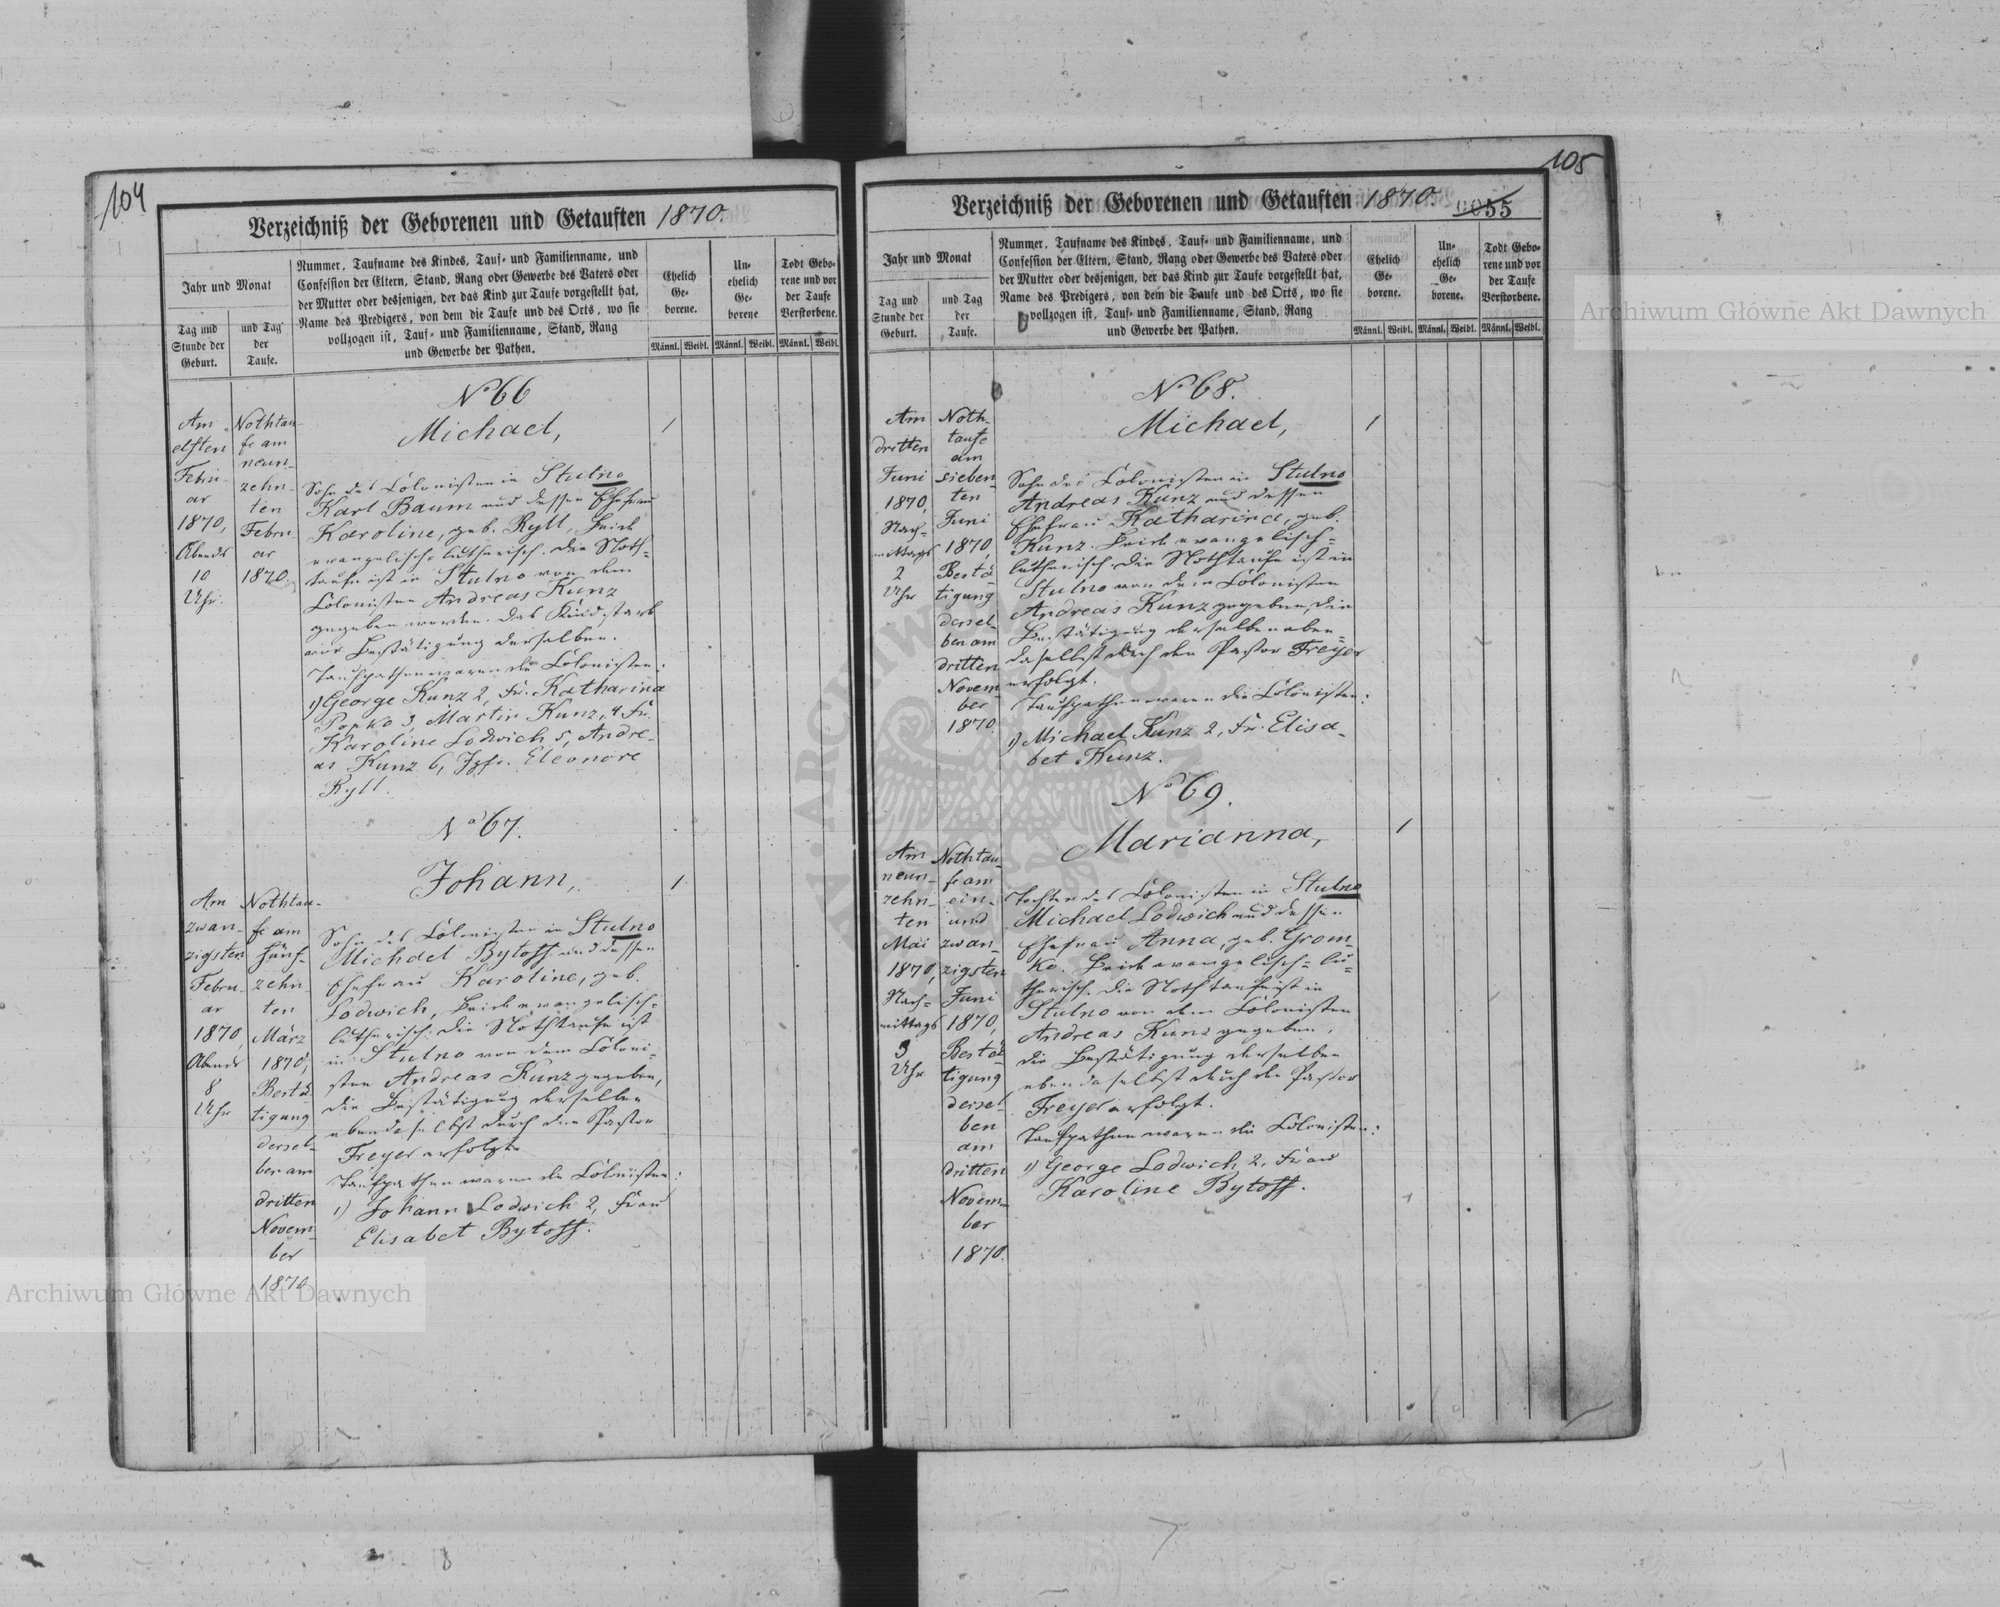 104
Verzeichniß der Geborenen und Getauften 1870.
Jahr und Monat
Tag und
Stunde der
Geburt.
und Tag
der
Taufe.
Nummer, Taufname des Kindes, Tauf- und Familienname, und
Confession der Eltern, Stand, Rang oder Gewerbe des Vaters oder
der Mutter oder desjenigen, der das Kind zur Taufe vorgestellt hat,
Name des Predigers, von dem die Taufe und des Orts, wo sie
vollzogen ist, Tauf- und Familienname, Stand, Rang
und Gewerbe der Pathen.
Ehelich
Ge-
borene.
Un-
ehelich
Ge-
borene
Todt Gebo-
rene und vor
der Taufe
Verstorbene.
Männl. Weibl. Männl. Weibl. Männl. Weibl.
No 66
Am
elften
Febru-
ar
1870,
Abends
10
Uhr.
Nothtau-
fe am
neun-
zehn-
ten
Febru-
ar
1870.
Michael,
1
Sohn des Colonisten in Stulno
Karl Baum und dessen Ehefrau
Karoline, geb. Ryll, beide
evangelisch-lutherisch. Die Noth-
taufe ist in Stulno von dem
Colonisten Andreas Kunz
gegeben worden. Das Kind starb
vor Bestätigung derselben.
Taufpathen waren die Colonisten:
1) George Kunz 2, Fr. Katharina
Popko 3, Martin Kunz, 4 Fr.
Karoline Lodwich 5, Andre-
as Kunz 6, Jgfr. Eleonore
Ryll.
No 67.
Am
zwan-
zigsten
Febru-
ar
1870,
Abends
8
Uhr
Nothtau-
fe am
fünf-
zehn-
ten
März
1870,
Bestä-
tigung
dersel-
ben am
dritten
Novem-
ber
1870
Johann,
1
Sohn des Colonisten in Stulno
Michael Bytoff und dessen
Ehefrau Karoline, geb.
Lodwich, beide evangelisch-
lutherisch. Die Nothtaufe ist
in Stulno von dem Coloni-
sten Andreas Kunz gegeben,
die Bestätigung derselben
ebendaselbst durch den Pastor
Freyer erfolgt.
Taufpathen waren die Colonisten:
1) Johann Lodwich 2, Frau
Elisabet Bytoff.
105
0055
Verzeichniß der Geborenen und Getauften 1870.
Jahr und Monat
Tag und
Stunde der
Geburt.
und Tag
der
Taufe.
Nummer, Taufname des Kindes, Tauf- und Familienname, und
Confession der Eltern, Stand, Rang oder Gewerbe des Vaters oder
der Mutter oder desjenigen, der das Kind zur Taufe vorgestellt hat,
Name des Predigers, von dem die Taufe und des Orts, wo sie
vollzogen ist, Tauf- und Familienname, Stand, Rang
und Gewerbe der Pathen.
Ehelich
Ge-
borene.
Un-
ehelich
Ge-
borene.
Todt Gebo-
rene und vor
der Taufe
Verstorbene.
Männl. Weibl. Männl. Weibl. Männl. Weibl.
No 68.
Am
dritten
Juni
1870,
Nach-
mittags
2
Uhr
Noth-
taufe
am
sieben-
ten
Juni
1870,
Bestä-
tigung
dersel-
ben am
dritten
Novem-
ber
1870.
Michael,
1
Sohn des Colonisten in Stulno
Andreas Kunz und dessen
Ehefrau Katharina, geb.
Kunz. Beide evangelisch-
lutherisch. Die Nothtaufe ist in
Stulno von dem Colonisten
Andreas Kunz gegeben, die
Bestätigung derselben eben-
daselbst durch den Pastor Freyer
erfolgt.
Taufpathen waren die Colonisten:
1) Michael Kunz 2, Fr. Elisa-
bet Kunz.
No 69.
Am
neun-
zehn-
ten
Mai
1870,
Nach-
mittags
3
Uhr
Nothtau-
fe am
ein-
und
zwan-
zigsten
Juni
1870,
Bestä-
tigung
dersel-
ben
am
dritten
Novem-
ber
1870.
Marianna,
1
Tochter des Colonisten in Stulno
Michael Lodwich und dessen
Ehefrau Anna, geb. Grom-
ke. Beide evangelisch-lu-
therisch. Die Nothtaufe ist in
Stulno von dem Colonisten
Andreas Kunz gegeben,
die Bestätigung derselben
ebendaselbst durch den Pastor
Freyer erfolgt.
Taufpathen waren die Colonisten:
1) George Lodwich 2, Frau
Karoline Bytoff.
Archiwum Główne Akt Dawnych
Archiwum Główne Akt Dawnych